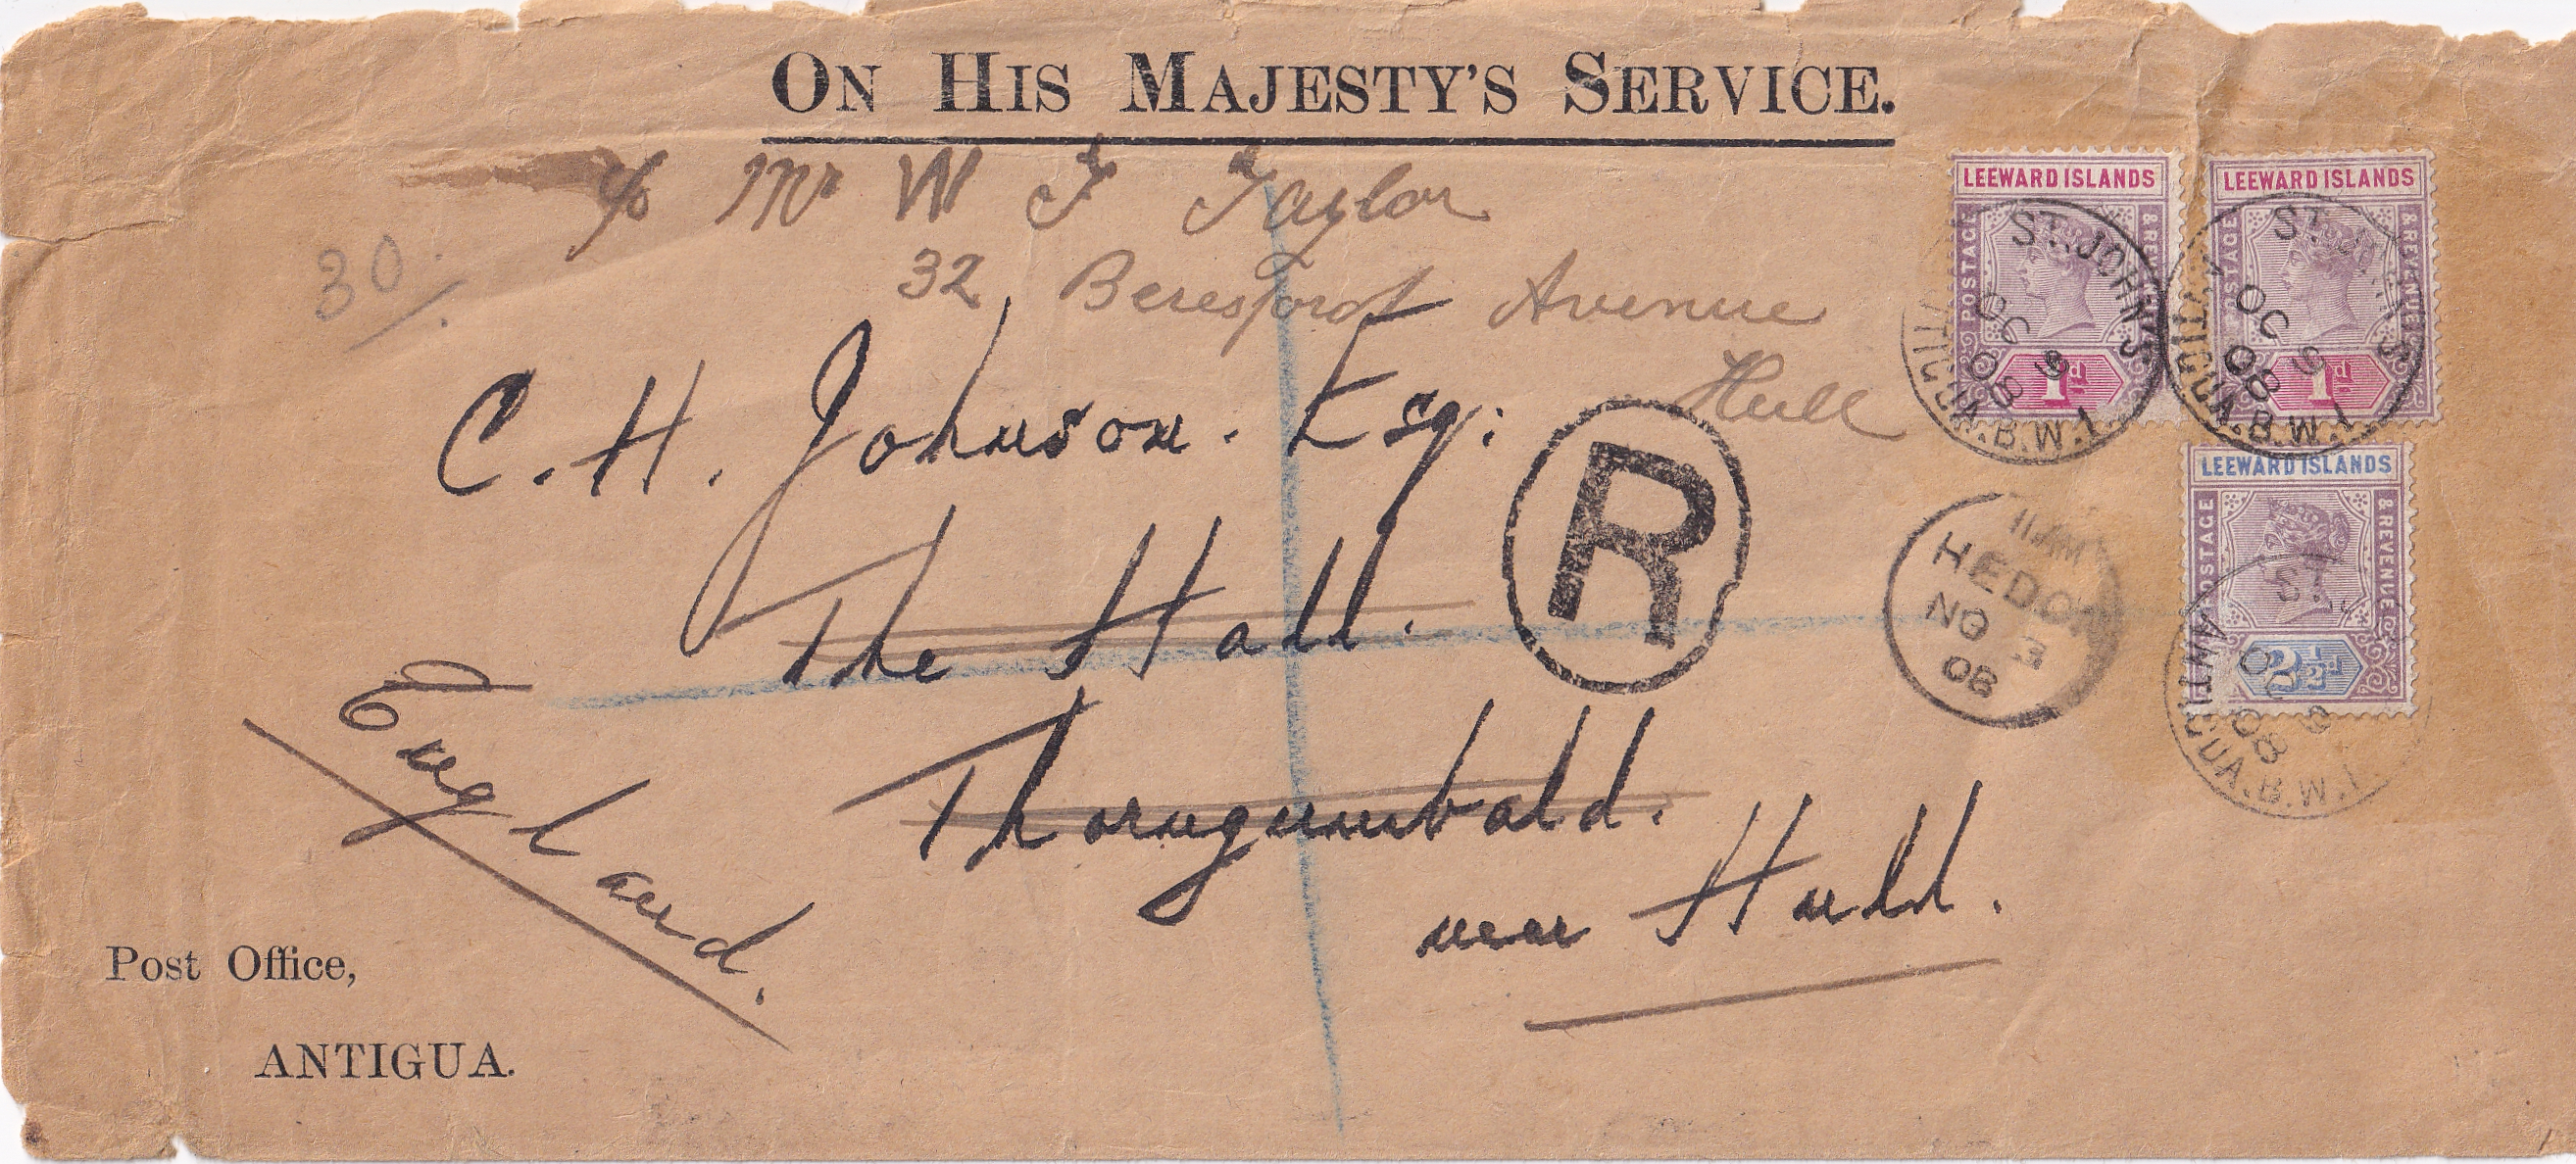 ON HIS MAJESTY'S SERVICE.
c/o Mr W F Taylor
32 Beresford Avenue
Hull
30/.
C. H. Johnson. Esq:
The Hall.
Thorngumbald.
near Hull.
England.
R
Post Office,
ANTIGUA.
LEEWARD ISLANDS
POSTAGE & REVENUE
1d
LEEWARD ISLANDS
POSTAGE & REVENUE
1d
LEEWARD ISLANDS
POSTAGE & REVENUE
2½d
ST. JOHN'S
OC 9
08
ANTIGUA. B.W.I.
ST. JOHN'S
OC 9
08
ANTIGUA. B.W.I.
ST.
OC 9
08
ANTIGUA. B.W.I.
11 AM
HEDON
NO 3
08